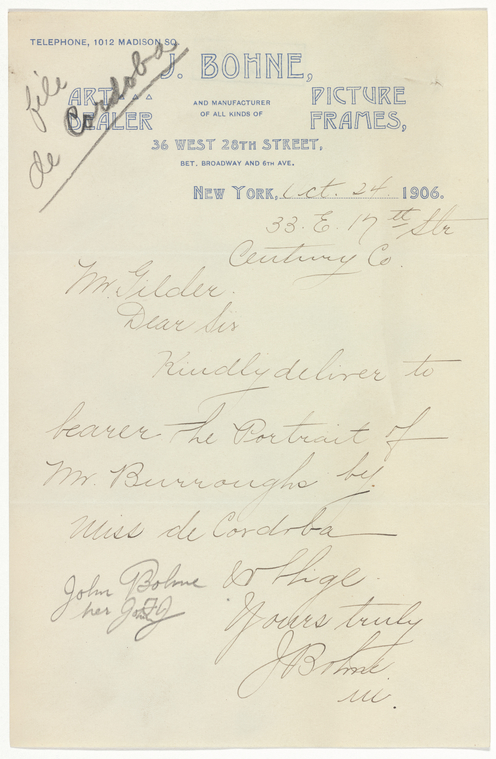 TELEPHONE, 1012 MADISON SQ.
file
de Cordoba
J. BOHNE,
ART DEALER
AND MANUFACTURER
OF ALL KINDS OF
PICTURE FRAMES,
36 WEST 28TH STREET,
BET. BROADWAY AND 6TH AVE.
NEW YORK, Oct. 24 1906.
33. E. 17th Str
Century Co.
Mr. Gilder.
Dear Sir
Kindly deliver to
bearer the Portrait of
Mr. Burroughs by
Miss de Cordoba
& oblige
Yours truly
J Bohne
John Bohne
her